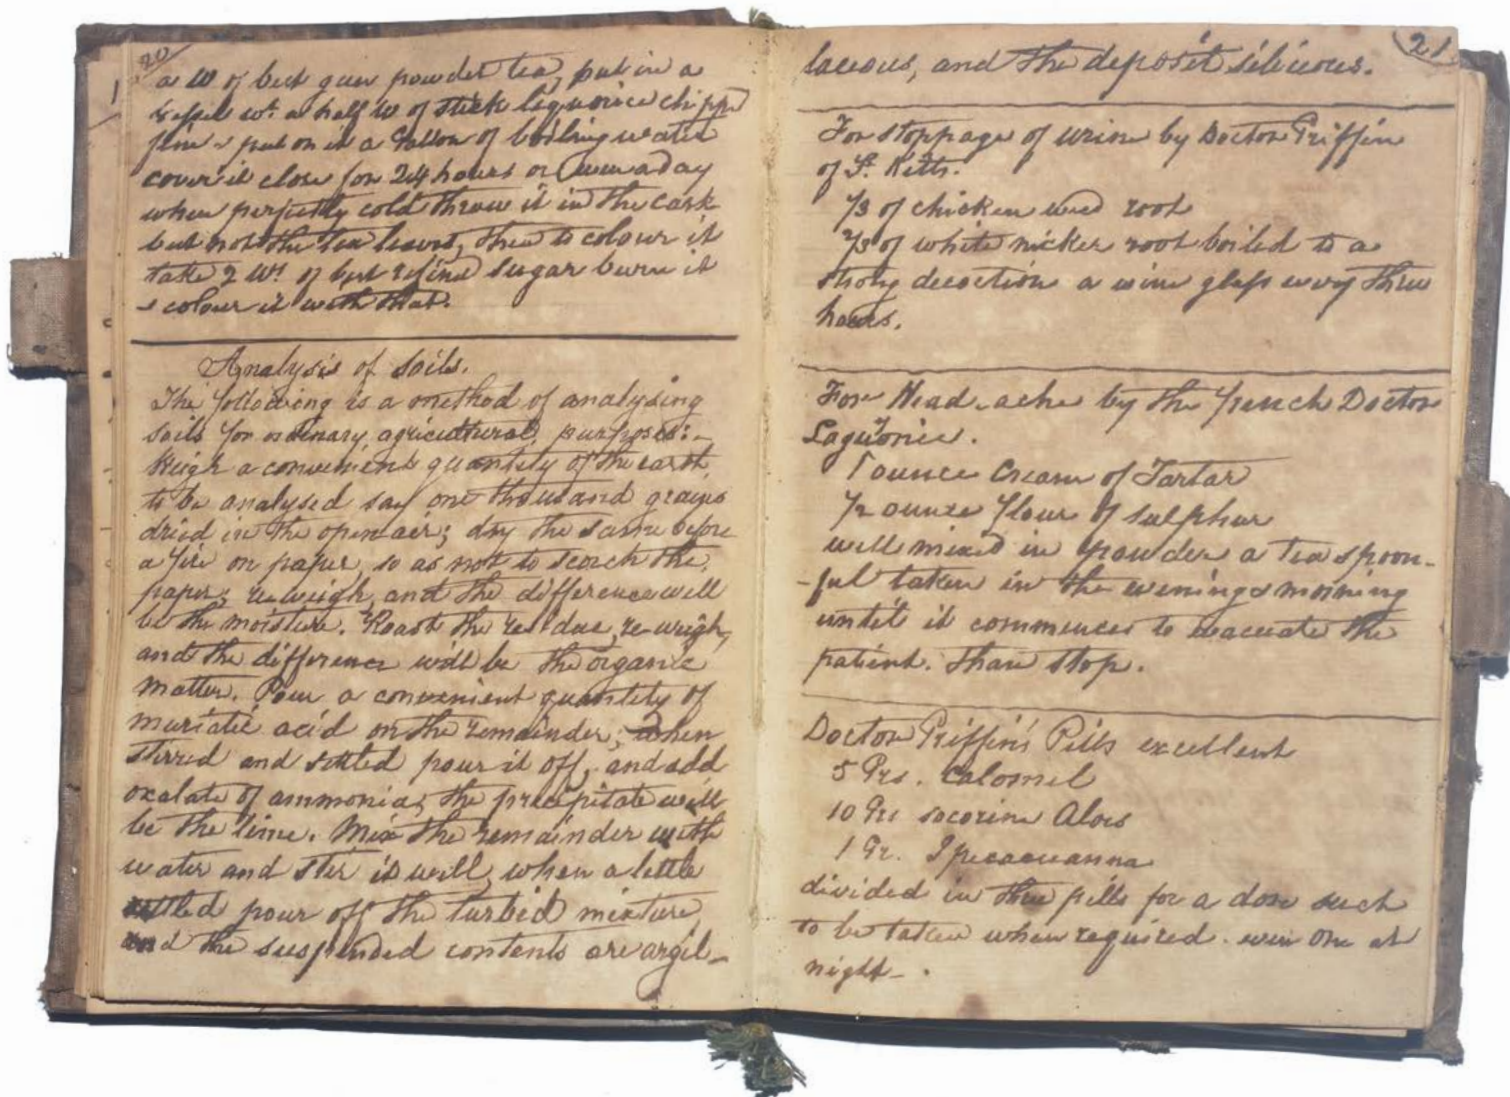 20
a lb of best gun powder tea, put in a
vessel wt. a half lb of stick liquorice chipp'd
fine & put on it a Gallon of boiling water
cover it close for 24 hours or even a day
when perfectly cold throw it in the cask
but not the tea leaves, then to colour it
take 2 lbs. of best refined sugar burn it
& colour it with that.
Analysis of Soils.
The following is a method of analysing
soils for ordinary agricultural purposes:-
Weigh a convenient quantity of the earth
to be analysed say one thousand grains
dried in the open aer; dry the same before
a fire on paper, so as not to scorch the
paper; re-weigh, and the difference will
be the moisture. Roast the residue, re-weigh,
and the difference will be the organic
matter. Pour a convenient quantity of
muriatic acid on the remainder; when
stirred and settled pour it off, and add
oxalate of ammonia, the precipitate will
be the lime. Mix the remainder with
water and stir it well, when a little
settled pour off the turbid mixture
and the suspended contents are argil-
21
laceous, and the deposit silicious.
For stoppage of urine by Doctor Griffin
of St. Kitts.
1/3 of chicken weed root
2/3 of white nicker root boiled to a
strong decoction a wine glass every three
hours.
For Head-ache by the french Doctor
1 ounce Cream of Tartar
1/2 ounce flour of sulphur
well mixed in powder a tea spoon-
-ful taken in the evening & morning
until it commences to evacuate the
patient. than stop.
Doctor Griffin's Pills excellent
5 Grs. Calomel
10 Grs socorine Aloes
1 Gr. Ipecacuanna
divided in three pills for a dose such
to be taken when required. even one at
night-.